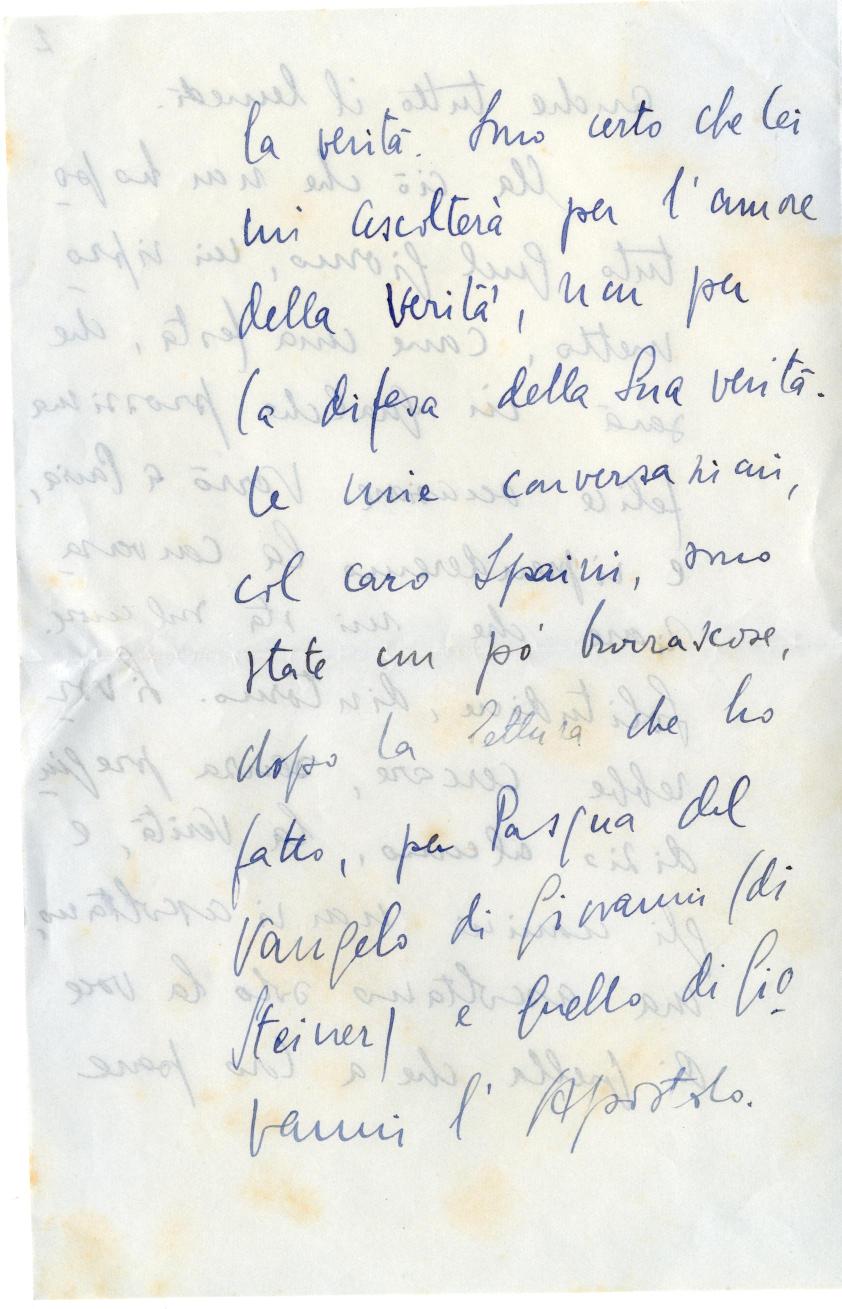 la verità. Sono certo che Lei
mi ascolterà per l'amore
della Verità, non per
la difesa della Sua verità.
Le mie conversazioni,
col caro Spaini, sono
state un pò burrascose,
dopo la lettura che ho
fatto, per Pasqua del
Vangelo di Giovanni (di
Steiner) e quello di Gio
vanni l'Apostolo.